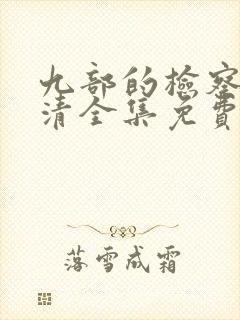 九部的检察
清全集免费
落雪成霜